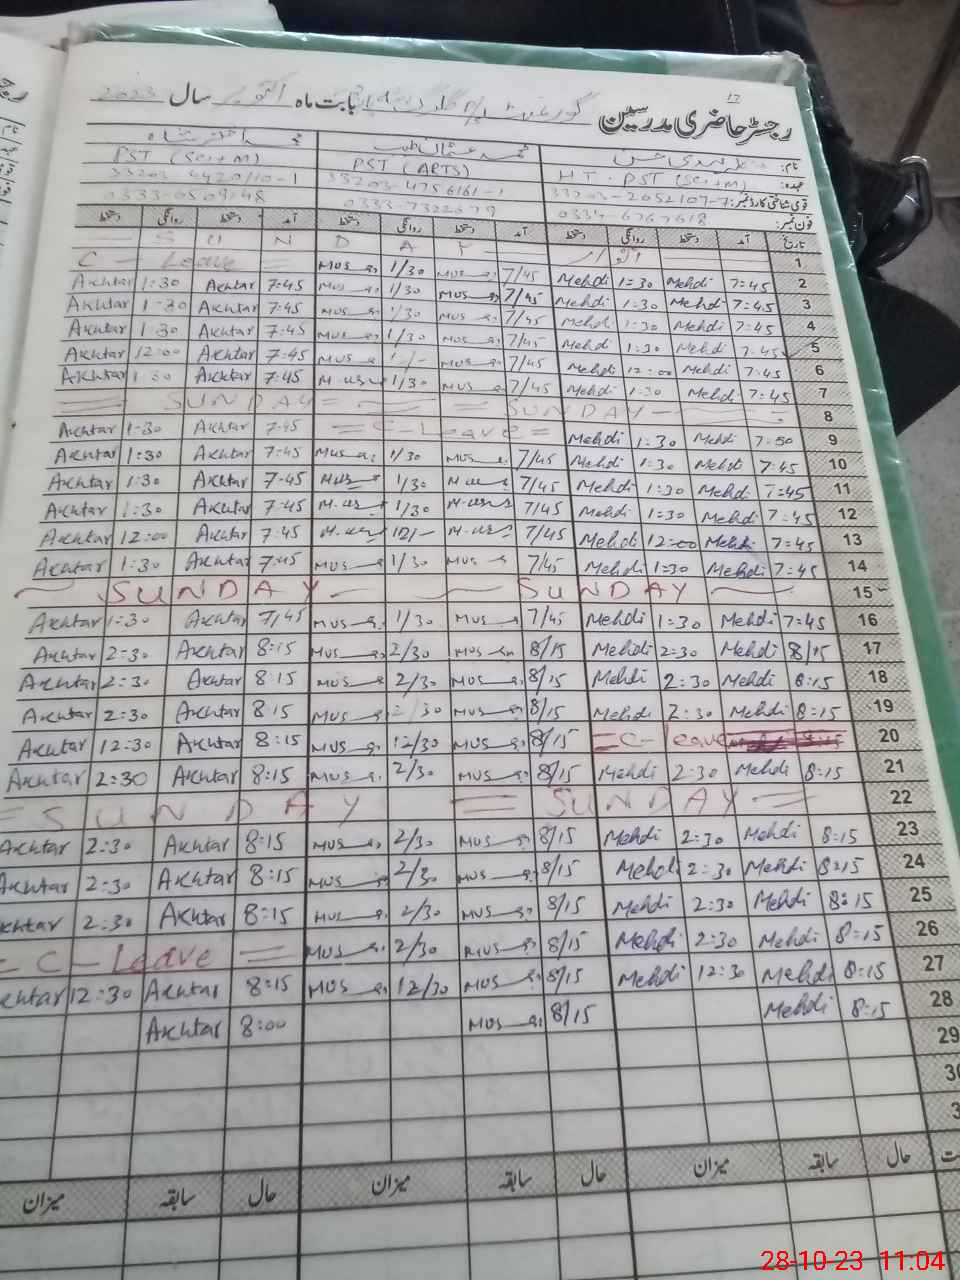 12
رجسٹر حاضری مدرسین گورنمنٹ بابت ماہ اکتوبر سال 2023
نام: مہدی حسن محمد عثمان اختر شاہ
عہدہ: HT. PST (Sci+m) PST (ARTS) PST (Sci+m)
قومی شناختی کارڈ نمبر: 33203-2052107-7 33203-4756161-1 33203-4420110-1
فون نمبر: 0334-6767618 0333-7322679 0333-0509148
تاریخ آمد دستخط روانگی دستخط آمد دستخط روانگی دستخط آمد دستخط روانگی دستخط
1 اتوار S U N D A Y
2 7=45 Mehdi 1=30 Mehdi 7/45 MUS 1/30 MUS = C - Leave =
3 7=45 Mehdi 1:30 Mehdi 7/45 MUS 1/30 MUS 7=45 Akhtar 1:30 Akhtar
4 7=45 Mehdi 1:30 Mehdi 7/45 MUS 1/30 MUS 7:45 Akhtar 1:30 Akhtar
5 7:45 Mehdi 1:30 Mehdi 7/45 MUS 1/30 MUS 7:45 Akhtar 1:30 Akhtar
6 7:45 Mehdi 12:00 Mehdi 7/45 MUS MUS 7:45 Akhtar 12:00 Akhtar
7 7:45 Mehdi 1:30 Mehdi 7/45 MUS 1/30 7:45 Akhtar 1:30 Akhtar
8 SUNDAY SUNDAY
9 7=50 Mehdi 1:30 Mehdi = C-Leave = 7:45 Akhtar 1:30 Akhtar
10 7:45 Mehdi 1:30 Mehdi 7/45 MUS 1/30 MUS 7:45 Akhtar 1:30 Akhtar
11 7=45 Mehdi 1:30 Mehdi 7/45 1/30 7-45 Akhtar 1:30 Akhtar
12 7=45 Mehdi 1:30 Mehdi 7/45 1/30 7:45 Akhtar 1:30 Akhtar
13 7=45 Mehdi 12=00 Mehdi 7/45 12/- 7:45 Akhtar 12:00 Akhtar
14 7=45 Mehdi 1=30 Mehdi 7/45 MUS 1/30 MUS 7:45 Akhtar 1:30 Akhtar
15 SUNDAY SUNDAY
16 7=45 Mehdi 1=30 Mehdi 7/45 MUS 1/30 MUS 7/45 Akhtar 1:30 Akhtar
17 8/15 Mehdi 2=30 Mehdi 8/15 MUS 2/30 MUS 8:15 Akhtar 2:30 Akhtar
18 8:15 Mehdi 2:30 Mehdi 8/15 MUS 2/30 MUS 8:15 Akhtar 2:30 Akhtar
19 8:15 Mehdi 2:30 Mehdi 8/15 MUS 2/30 MUS 8:15 Akhtar 2:30 Akhtar
20 = C-Leave 8/15 MUS 12/30 MUS 8:15 Akhtar 12:30 Akhtar
21 8:15 Mehdi 2:30 Mehdi 8/15 MUS 2/30 MUS 8:15 Akhtar 2:30 Akhtar
22 = SUNDAY = = SUNDAY
23 8:15 Mehdi 2:30 Mehdi 8/15 MUS 2/30 MUS 8:15 Akhtar 2:30 Akhtar
24 8:15 Mehdi 2:30 Mehdi 8/15 MUS 2/30 MUS 8:15 Akhtar 2:30 Akhtar
25 8:15 Mehdi 2:30 Mehdi 8/15 MUS 2/30 MUS 8:15 Akhtar 2:30 Akhtar
26 8:15 Mehdi 2:30 Mehdi 8/15 MUS 2/30 MUS = C - Leave =
27 8:15 Mehdi 12:30 Mehdi 8/15 MUS 12/30 MUS 8:15 Akhtar 12:30 Akhtar
28 8:15 Mehdi 8/15 MUS 8:00 Akhtar
29
30
حال سابقہ میزان حال سابقہ میزان حال سابقہ میزان
28-10-23 11:04